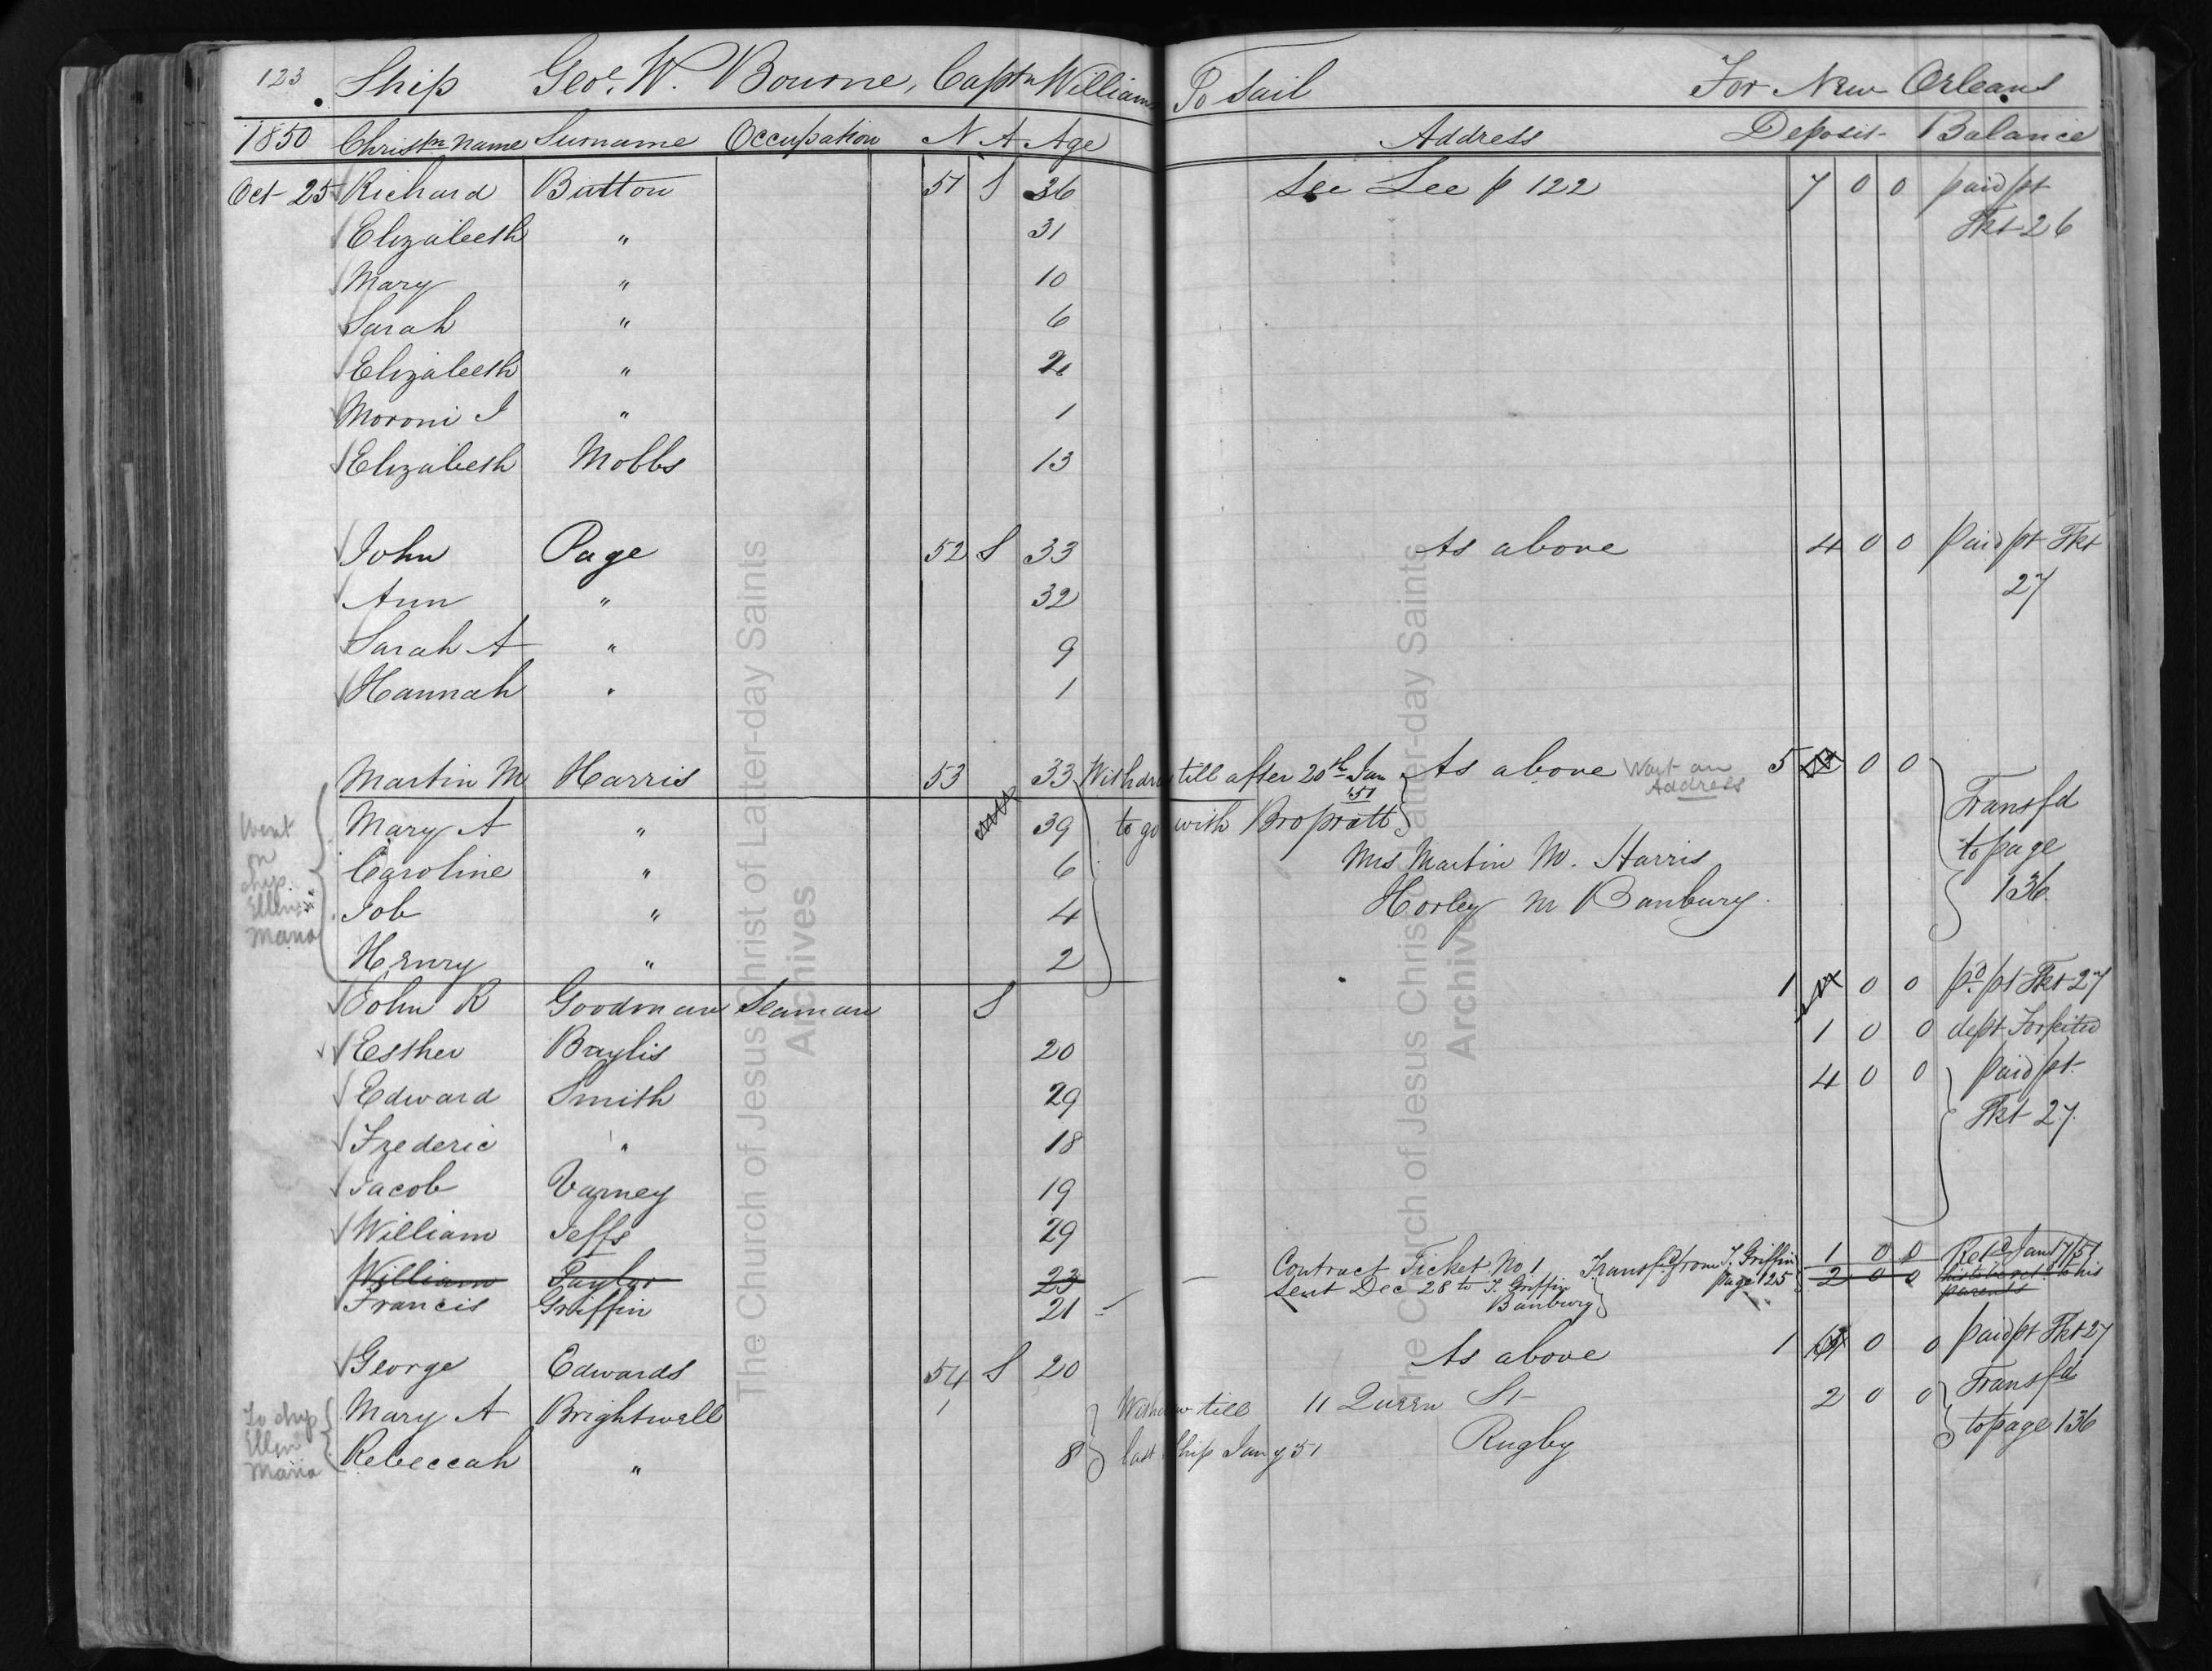 123 Ship Geoe. W. Bourne, Captn Williams To Sail For New Orleans
1850 Christn name Surname Occupation N A Age Address Deposit Balance
Oct 25 Richard Button 51 S 36 See Lee p 122 7 0 0 paid pt
Elizabeth " 31 Tkt 26
Mary " 10
Sarah " 6
Elizabeth " 2
Moroni J " 1
Elizabeth Mobbs 13
John Page 52 S 33 As above 4 0 0 Paid pt Tkt
Ann " 32 27
Sarah A " 9
Hannah " 1
Martin M Harris 53 33 Withdrew till after 20th Jan As above Want an 5 0 0
51 Address Transfd
Went Mary A " 39 to go with Bro pratt to page
on Caroline " 6 Mrs Martin M. Harris 136
ship Job " 4 Horley nr Banbury.
Ellen
Maria Henry " 2
John R Goodman Seaman S 1 0 0 pd pt Tkt 27
Esther Baylis 20 1 0 0 dept Forfeited
Edward Smith 29 4 0 0 paid pt
Frederic " 18 Tkt 27.
Jacob Varney 19
William Jeffs 29
William Taylor 23 Contract Ticket No 1 Transfd from J. Griffin 1 0 0 Retd Jan 17/51
Francis Griffin 21 Sent Dec 28 to J. Griffin page 125 2 0 0 his to be retd to his
Banbury parents
George Edwards 54 S 20 As above 1 0 0 paid pt Tkt 27
To ship Mary A Brightwell 1 Withdrew till 11 Queen St 2 0 0 Transfd
Ellen Rebeccah " 8 last Ship Jany 51 Rugby to page 136
Maria
The Church of Jesus Christ of Latter-day Saints
Archives
The Church of Jesus Christ of Latter-day Saints
Archives